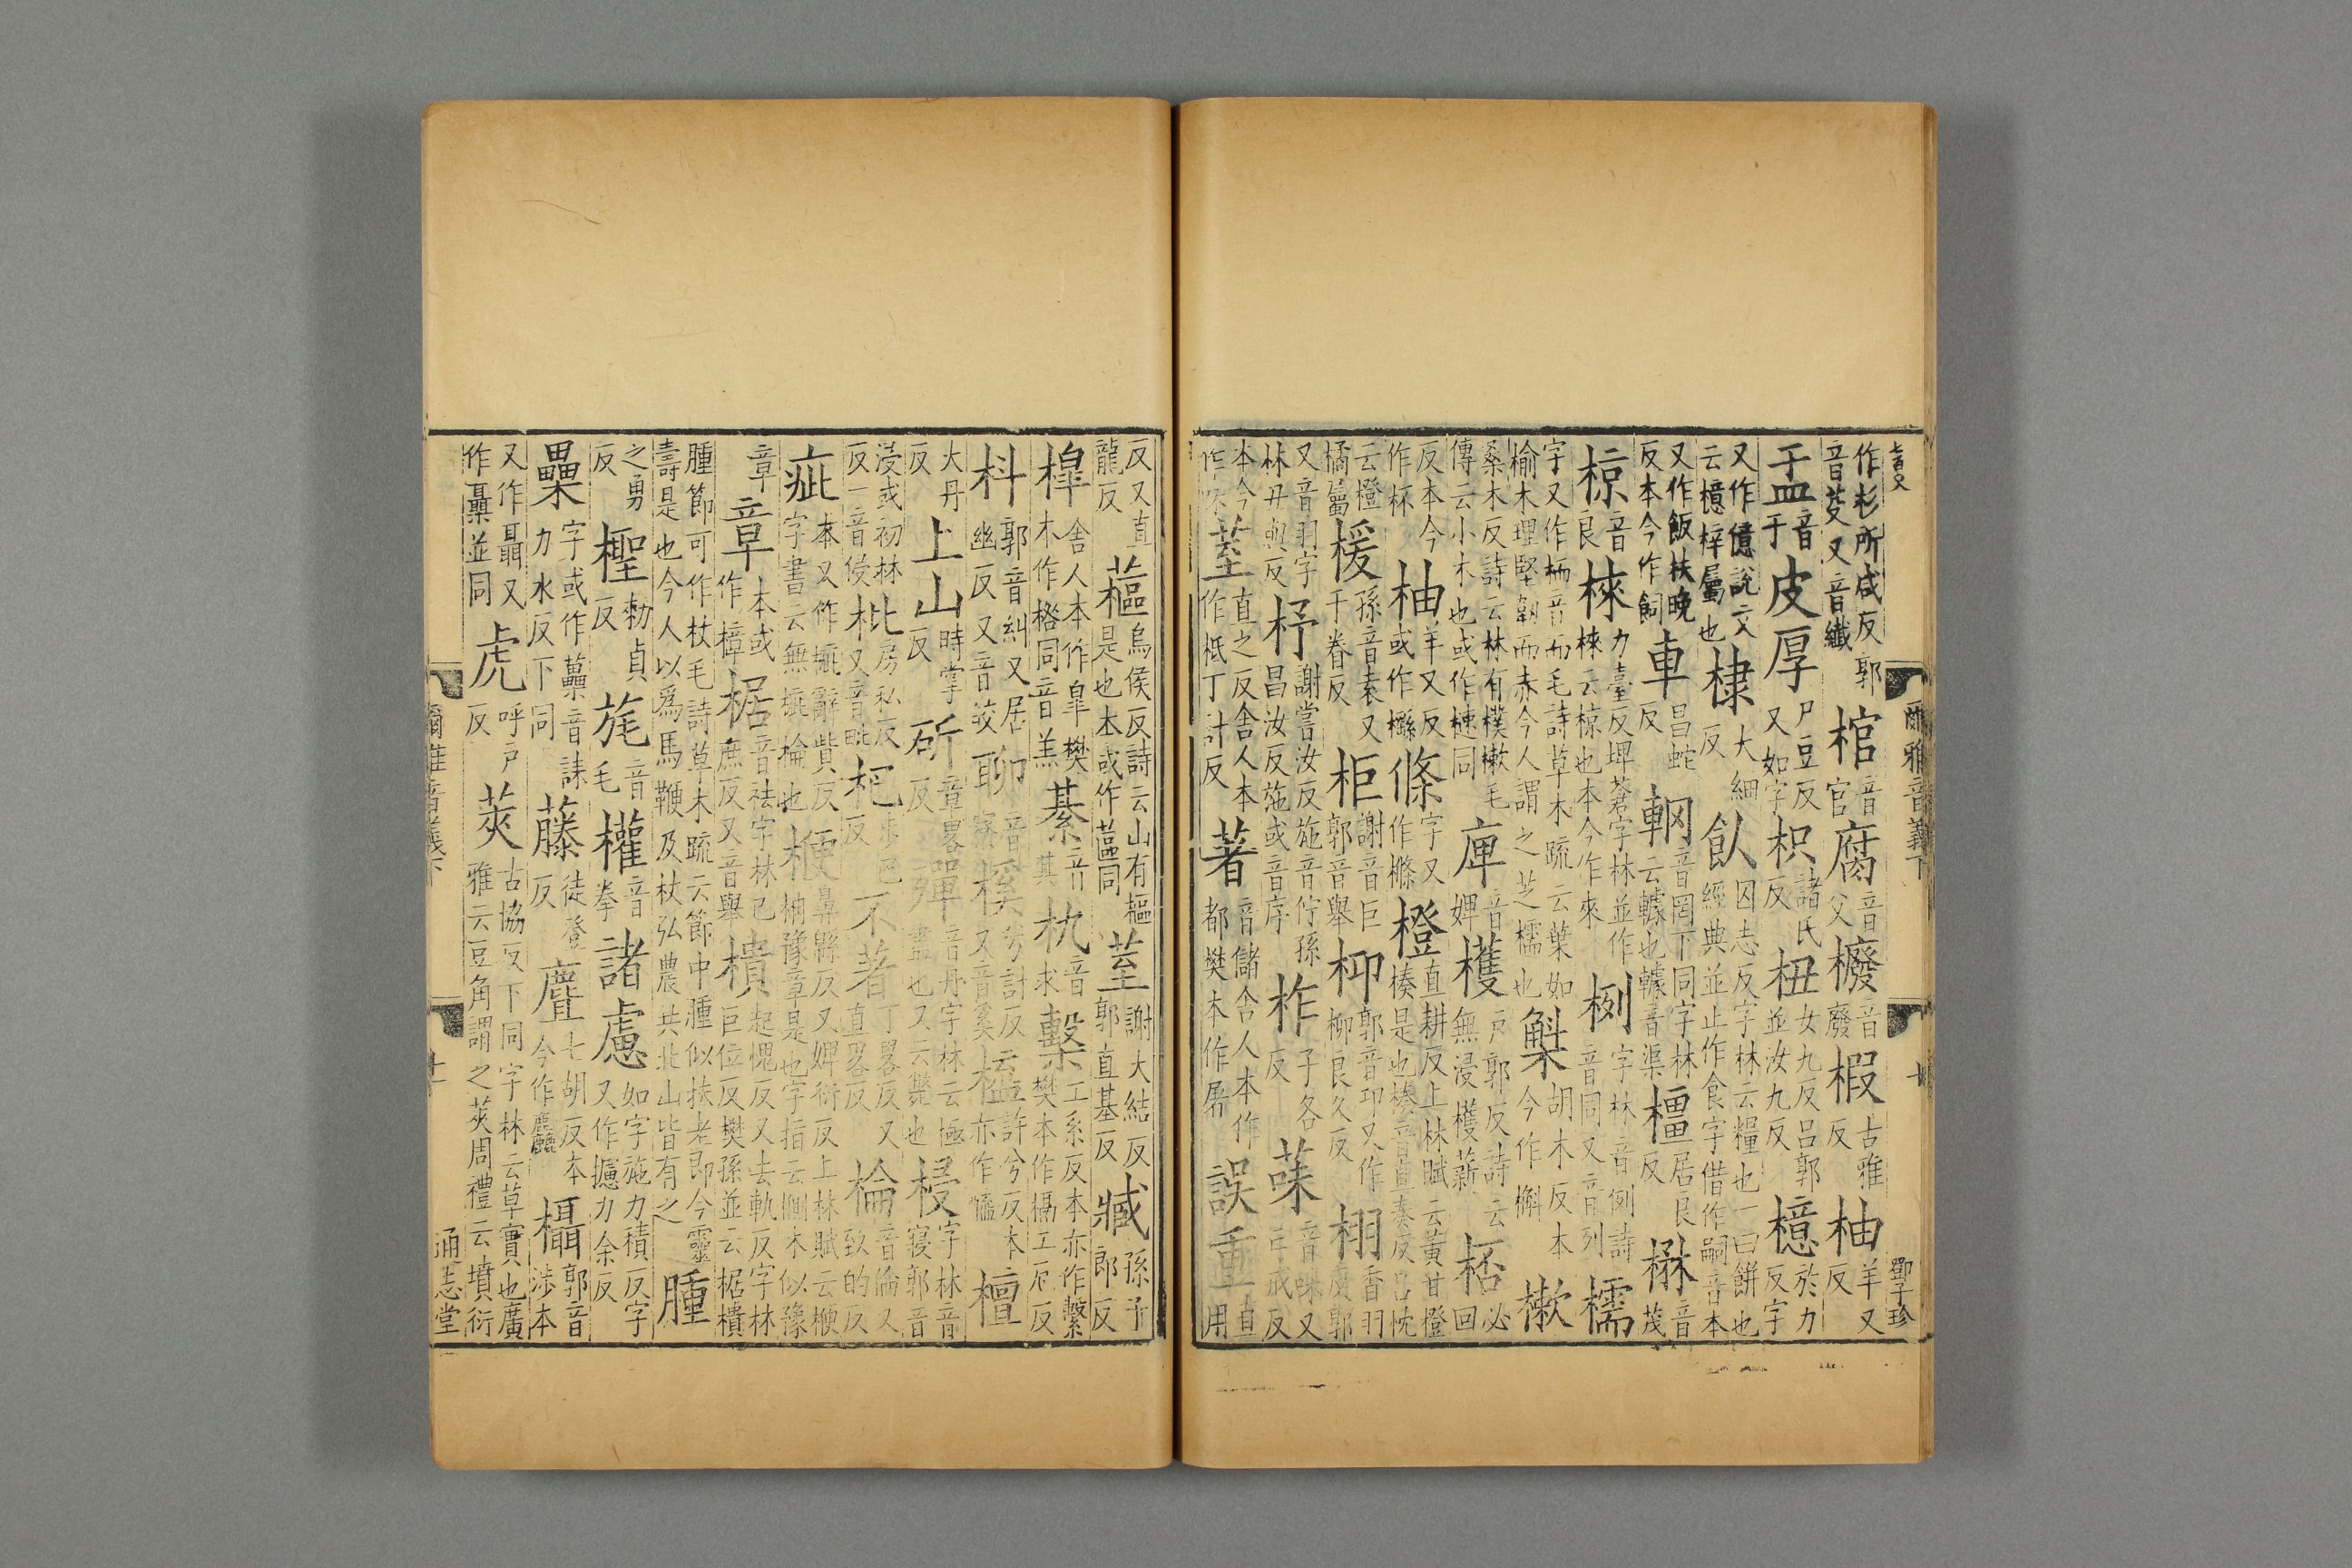 作杉所咸反郭音芟又音纖 棺音官 腐音父 櫠音廢 椵古雅反 柚羊又反
盂音于 皮厚户豆反又如字 枳諸氏反 杻女九反呂郭並汝九反 檍於力反字
又作億說文云檍梓屬也 棣大細反 飤囚志反字林云糧也一曰餅也經典並止作食字借作嗣音本
又作飯扶晚反本今作飼 車昌蛇反 輞音罔下同字林云轅也轅音渠 橿居良反 楙音茂
椋音良 棶力臺反埤蒼字林並作棶云椋也本今作來 栵字林音例詩音同又音列 檽
字又作栭音而毛詩草木疏云葉如榆木理堅韌而赤今人謂之芝檽也 槲胡木反本今作檞 樕
桑木反詩云林有樸樕毛傳云小木也或作樕同 庳音婢 檴户郭反詩云無浸檴薪 桮必回
反本今作杯 柚羊又反或作櫾 條字又作樤 橙直耕反上林賦云黃甘橙楱是也楱音直奏反呂忱
云橙橘屬 楥孫音袁又于眷反 柜謝音巨郭音舉 枊郭音卬又作柳良久反 栩香羽反郭
又音羽字林丑與反 杼謝嘗汝反施音佇孫昌汝反施或音序 柞子各反 菋音味又亡戒反
本今作味 荎直之反舍人本作柢丁計反 著音儲舍人本作都樊本作屠 誤 重直用
反又直龍反 蓲烏侯反詩云山有樞是也本或作蓲同 荎謝大結反郭直基反 臧孫子郎反
槹舍人本作皐樊木作楁同音羔 綦音其 朹音求 檕工系反本亦作繫樊本作槅工厄反
朻郭音糾又居幽反又音皎 聊音寮 榽兮計反又音奚 橀許兮反本亦作㰕 檀
大丹反 上山時掌反 斫章畧反 殫音丹字林云極盡也又云斃也 梫字林音寢郭音
浸或初林反一音侵 枇房私反又音毗 杷步巴反 不著丁畧反又直畧反 棆音倫又致的反
疵本又作㾗辭貲反字書云無疵棆也 楩鼻縣反又婢衍反上林賦云楩柟豫章是也字指云㭓木似豫
章 章本或作樟 椐音祛字林己庶反又音舉 樻起愧反又去軌反字林巨位反樊孫並云椐樻
腫節可作杖毛詩草木疏云節中腫似扶老即今靈壽是也今人以爲馬鞭及杖弘農共北山皆有之 腫
之勇反 檉勑貞反 旄音毛 權音拳 諸慮如字施力積反字又作攄力余反
櫐字或作藟音誄力水反下同 藤徒登反 麆七胡反本今作麤 欇郭音涉本
又作聶又作櫐並同 虎呼戸反 莢古協反下同字林云草實也廣雅云豆角謂之莢周禮云墳衍
爾雅音義下
鄧子珍
爾雅音義下
通志堂